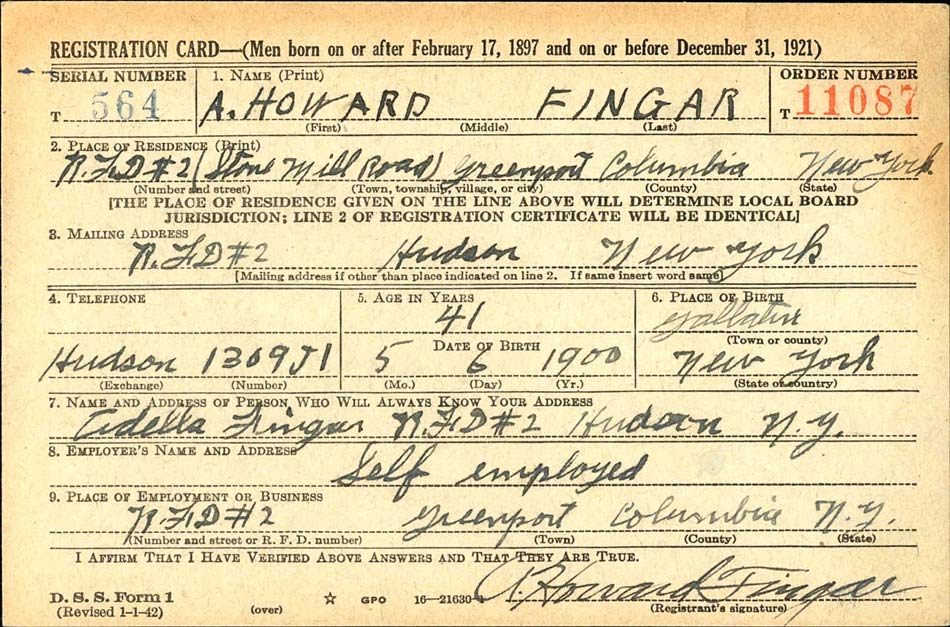 REGISTRATION CARD—(Men born on or after February 17, 1897 and on or before December 31, 1921)
SERIAL NUMBER 1. NAME (Print) ORDER NUMBER
T 564 A. HOWARD FINGAR T 11087
(First) (Middle) (Last)
2. PLACE OF RESIDENCE (Print)
R.F.D #2 (Stone Mill Road) Greenport Columbia New York
(Number and street) (Town, township, village, or city) (County) (State)
[THE PLACE OF RESIDENCE GIVEN ON THE LINE ABOVE WILL DETERMINE LOCAL BOARD
JURISDICTION; LINE 2 OF REGISTRATION CERTIFICATE WILL BE IDENTICAL]
3. MAILING ADDRESS
R.F.D #2 Hudson New York
[Mailing address if other than place indicated on line 2. If same insert word same]
4. TELEPHONE 5. AGE IN YEARS 6. PLACE OF BIRTH
41 Gallatin
DATE OF BIRTH (Town or county)
Hudson 1309J1 5 6 1900 New York
(Exchange) (Number) (Mo.) (Day) (Yr.) (State or country)
7. NAME AND ADDRESS OF PERSON WHO WILL ALWAYS KNOW YOUR ADDRESS
Adella Fingar R.F.D #2 Hudson N.Y.
8. EMPLOYER'S NAME AND ADDRESS
Self employed
9. PLACE OF EMPLOYMENT OR BUSINESS
R.F.D #2 Greenport Columbia N.Y.
(Number and street or R. F. D. number) (Town) (County) (State)
I AFFIRM THAT I HAVE VERIFIED ABOVE ANSWERS AND THAT THEY ARE TRUE.
A. Howard Fingar
D. S. S. Form 1
(Revised 1-1-42) (over) ☆ GPO 16—21630-1 (Registrant's signature)